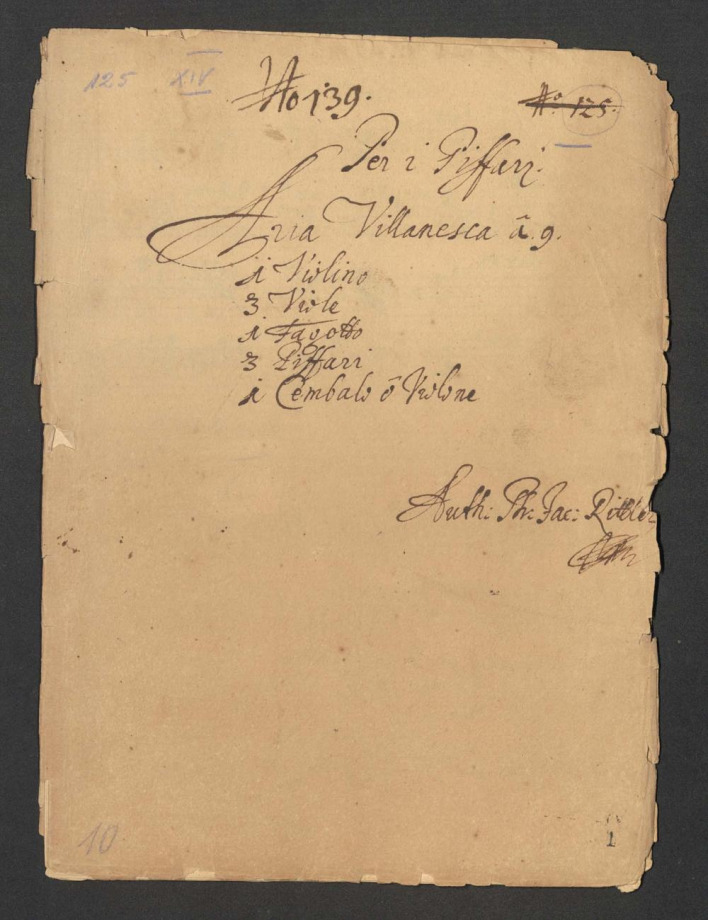 125 XIV
No 139.
No. 125.
Per i Piffari.
Aria Villanesca â 9.
1 Violino
3 Viole
1 Fagotto
3 Piffari
1 Cembalo ô Violone
Auth: Ph: Jac: Rittler
10
1